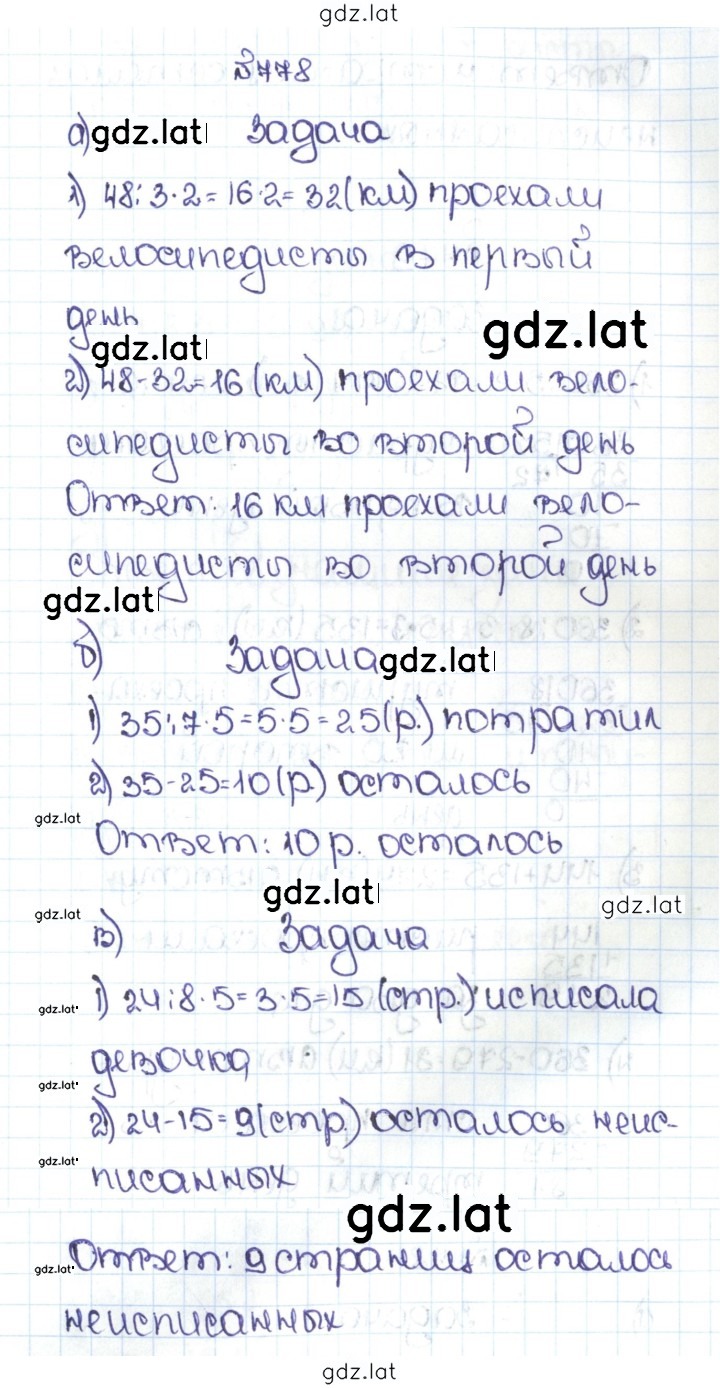 gdz.lat
№778
а) gdz.lat Задача
1) 48:3·2=16·2=32(км) проехали
велосипедисты в первый
день
gdz.lat
gdz.lat
2) 48-32=16(км) проехали вело-
сипедисты во второй день
Ответ: 16 км проехали вело-
сипедисты во второй день
gdz.lat
б) Задача gdz.lat
1) 35:7·5=5·5=25(р.) потратил
2) 35-25=10(р.) осталось
gdz.lat
Ответ: 10 р. осталось
gdz.lat
gdz.lat
gdz.lat
в) Задача
1) 24:8·5=3·5=15(стр.) исписала
gdz.lat
девочка
gdz.lat
2) 24-15=9(стр.) осталось неис-
gdz.lat
писанных
gdz.lat
Ответ: 9 страниц осталось
gdz.lat
неисписанных
gdz.lat